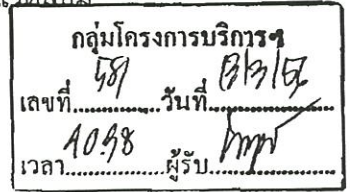 กลุ่มโครงการบริการฯ
เลขที่ 581 วันที่ 13/3/56
เวลา 10.58 ผู้รับ